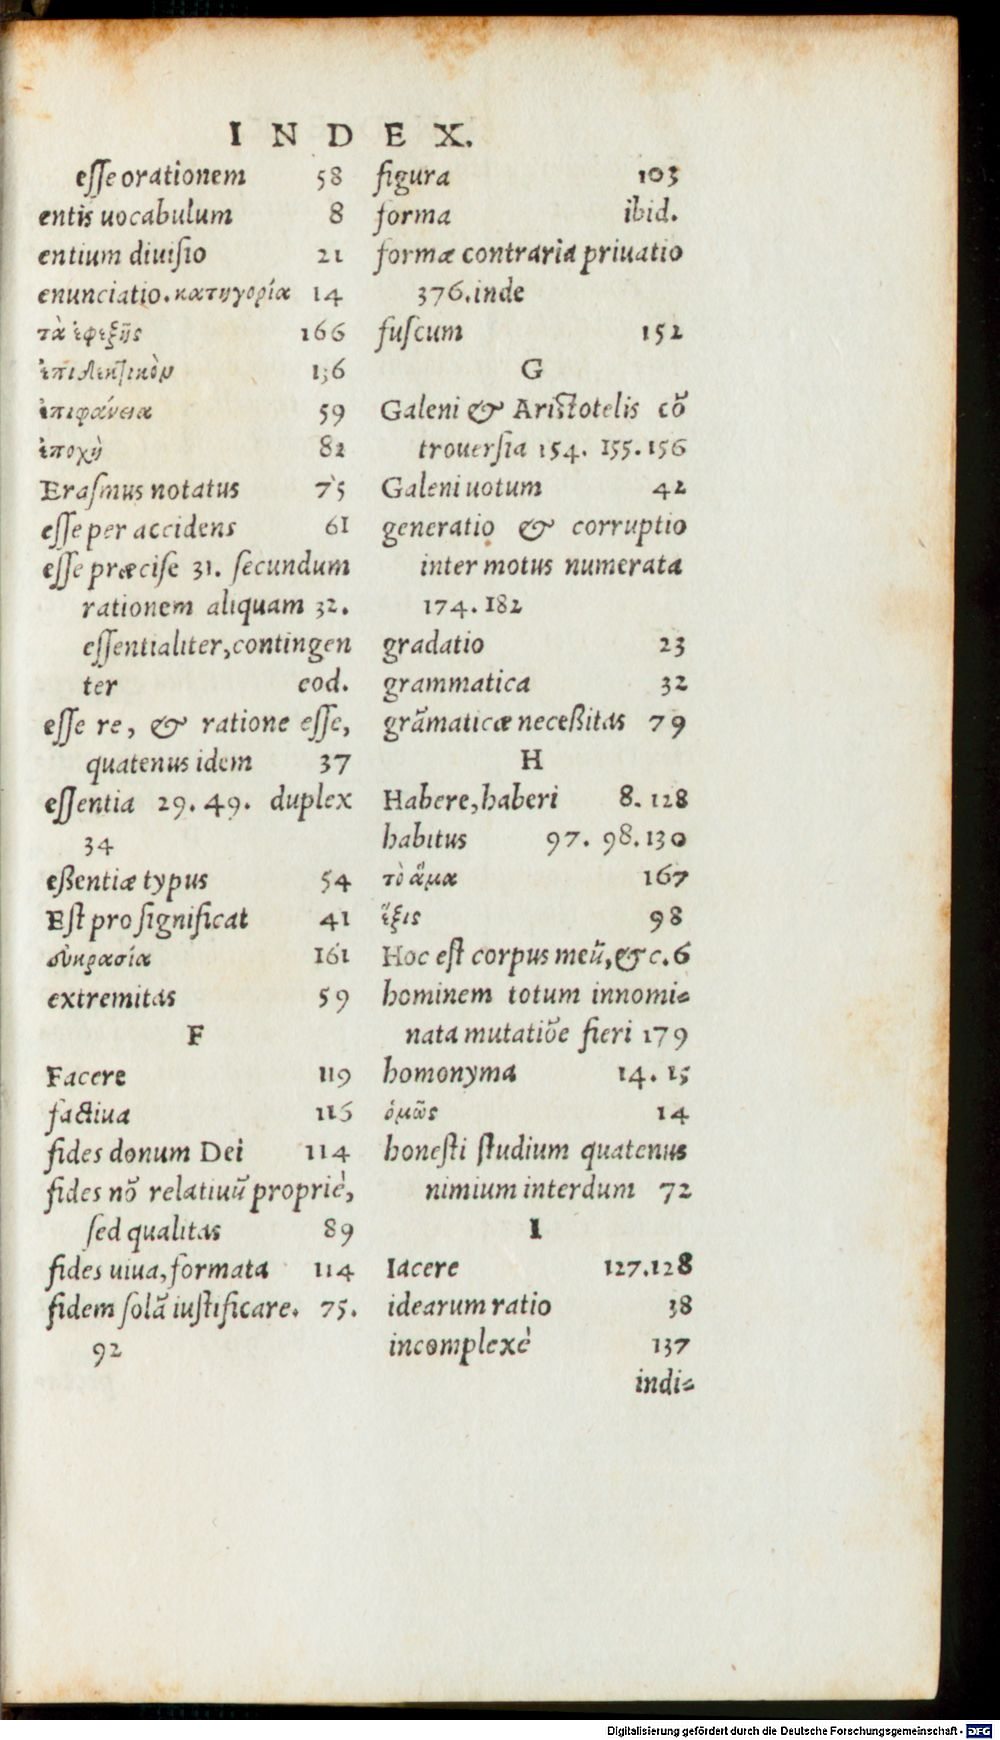 INDEX.
esse orationem 58
entis uocabulum 8
entium diuisio 21
enunciatio. κατηγορία 14
τὰ ἐφεξῆς 166
136
ἐπιφάνεια 59
ἐποχὴ 82
Erasmus notatus 75
esse per accidens 61
esse præcise 31. secundum
rationem aliquam 32.
essentialiter, contingen
ter eod.
esse re, & ratione esse,
quatenus idem 37
essentia 29. 49. duplex
34
eßentiæ typus 54
Est pro significat 41
161
extremitas 59
F
Facere 119
factiua 116
fides donum Dei 114
fides nõ relatiuũ propriè,
sed qualitas 89
fides uiua, formata 114
fidem solã iustificare. 75.
92
figura 103
forma ibid.
formæ contraria priuatio
376. inde
fuscum 152
G
Galeni & Aristotelis cõ
trouersia 154. 155. 156
Galeni uotum 42
generatio & corruptio
inter motus numerata
174. 182
gradatio 23
grammatica 32
grãmaticæ neceßitas 79
H
Habere, haberi 8. 128
habitus 97. 98. 130
τὸ ἅμα 167
ἕξις 98
Hoc est corpus meũ, &c. 6
hominem totum innomi=
nata mutatiõe fieri 179
homonyma 14. 15
ὁμῶς 14
honesti studium quatenus
nimium interdum 72
I
Iacere 127. 128
idearum ratio 38
incomplexè 137
indi=
Digitalisierung gefördert durch die Deutsche Forschungsgemeinschaft - DFG